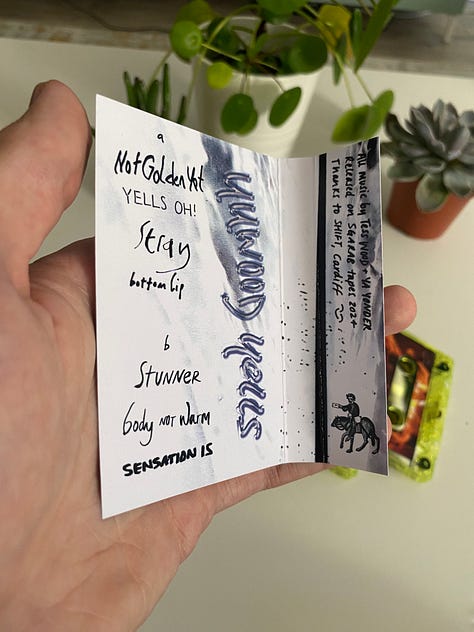 a
Not Golden Yet
YELLS OH!
Stray
bottom lip
b
STUNNER
body NOT WARM
SENSATION IS
All music by Tess WOOD + YA YONDER
Released on SGARAB tapes 2024
Thanks to SHIFT, Cardiff